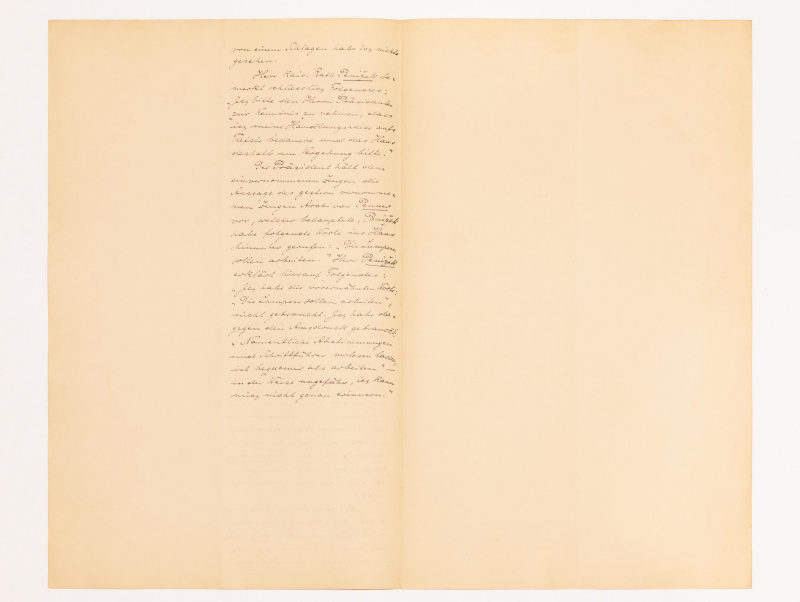 von einem Schlagen habe ich nichts
gesehen.
Herr Kais. Rath Penižek be-
merkt schliesslich Folgendes:
„Ich bitte den Herrn Präsidenten
zur Kenntnis zu nehmen, dass
ich meine Handlungsweise aufs
Tiefste bedauere und das Haus
deshalb um Vergebung bitte."
Der Präsident hält dem
einvernommenen Zeugen die
Aussage des gestern vernomme-
nen Zeugen Archivar Penner
vor, welcher behauptete, Penižek
habe folgende Worte ins Haus
hinunter gerufen: „Die Lumpen
sollen arbeiten." Herr Penižek
erklärt hierauf Folgendes:
„Ich habe die vorerwähnten Worte,
„Die Lumpen sollen arbeiten",
nicht gebraucht. Ich habe da-
gegen den Ausdruck gebraucht,
„Namentliche Abstimmungen
und Schriftführer verlesen lassen,
ist bequemer als arbeiten" –
in der Weise ungefähr, ich kann
mich nicht genau erinnern."